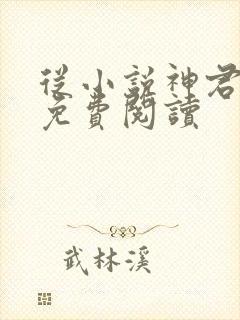 從小說神君
免費閱讀
武林溪